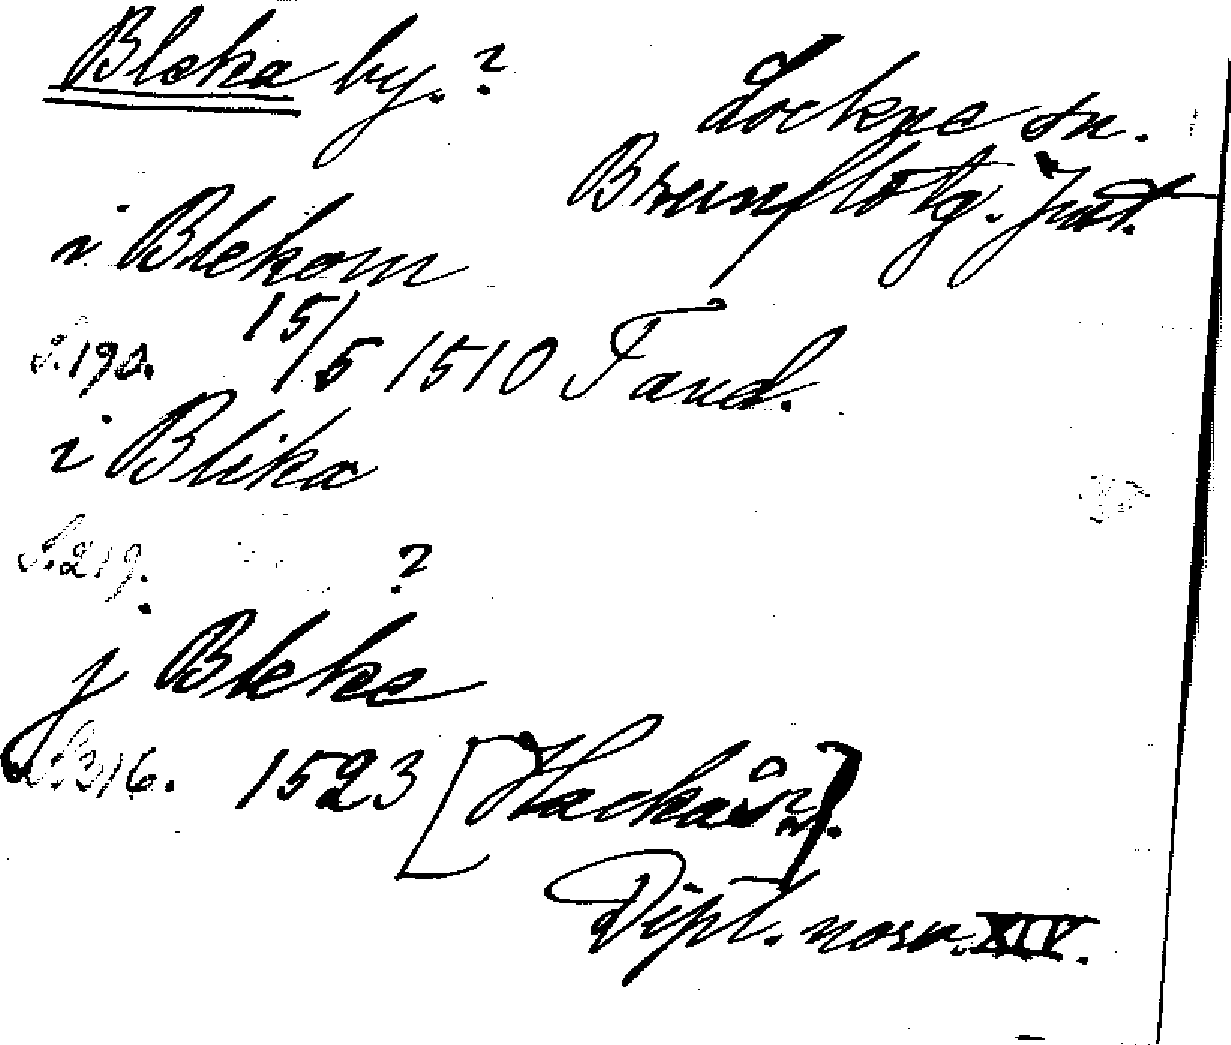 Bleka by. ?
Lockne sn.
Brunflo tg. Jmt.
i Blekom
S. 190. 15/5 1510 Fand.
i Blika
S. 219. ?
j Bleke
S. 316. 1523 [Hackås sn.]
Dipl. norv. XIV.